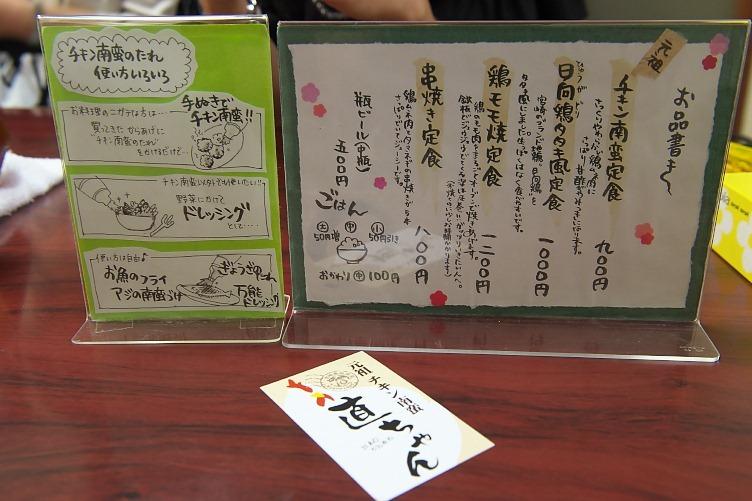 チキン南蛮のたれ
使い方いろいろ
お料理のニガテな方は…
手ぬきで
チキン南蛮!!
買ってきた からあげに
チキン南蛮のたれ
をかけるだけで…
チキン南蛮以外でも使いたい!!
野菜にかけて
ドレッシング
として……
使い方は自由♪
お魚のフライ
アジの南蛮づけ
ぎょうざのたれ
万能
ドレッシング
お品書き
元祖
チキン南蛮定食 九〇〇円
さっくりやわらかい鶏ムネ肉に
さっぱり甘酢がやみつきになります。
ひゅうがどり
日向鶏タタキ風定食 一〇〇〇円
宮崎のブランド鶏、日向鶏を
鶏モモ焼定食 一二〇〇円
串焼き定食 八〇〇円
瓶ビール(中瓶)
五〇〇円
ごはん
大 中 小
50円増 50円引き
おかわり 中 100円
元祖 チキン南蛮
直ちゃん